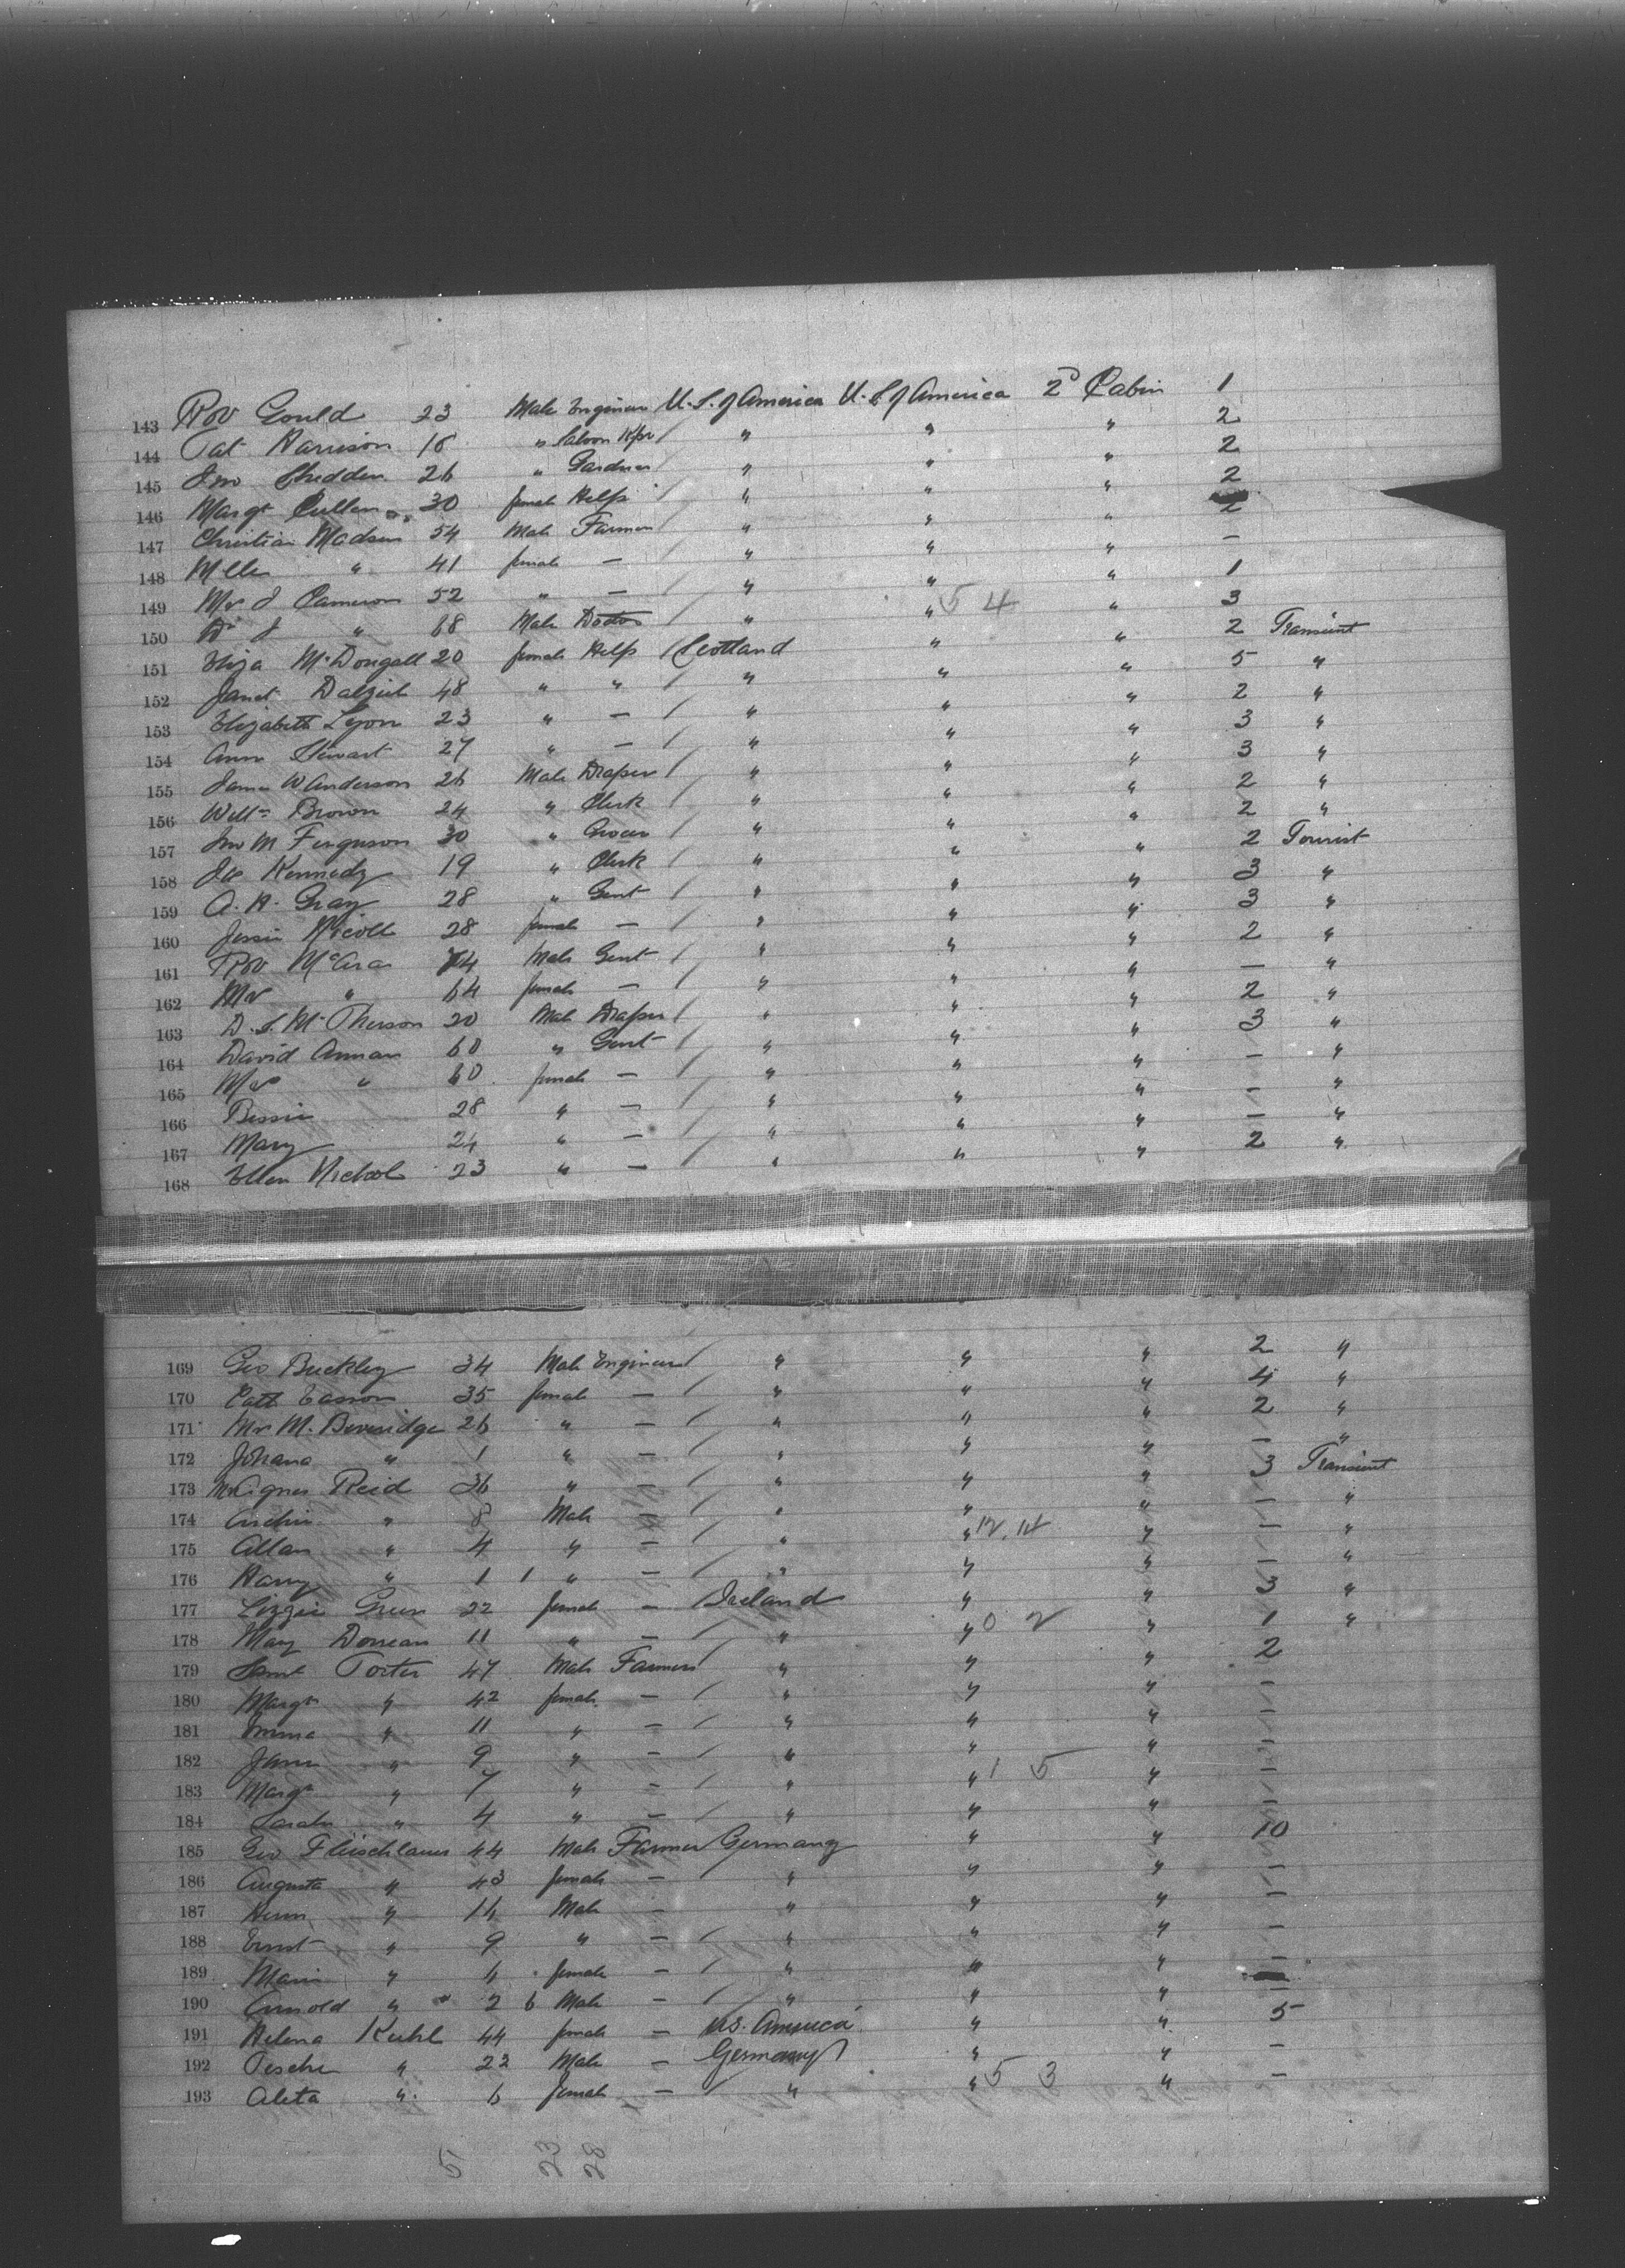 143 Rob Gould 23 Male Engineer U.S. of America U.S of America 2d Cabin 1
144 Pat Harrison 18 " Saloon Kpr / " " " 2
145 Jno Shedden 26 " Gardner / " " " 2
146 Margt Cullen 30 female Help / " " " 2
147 Christian Madsen 54 Male Farmer / " " " 2
148 " 41 female — " " " —
149 Mrs J Cameron 52 " — / " " " 1
150 Dr J " 68 Male Doctor / " " 5 4 " 3
151 Eliza McDougall 20 female Help / Scotland " " 2 Transient
152 Janet Dalziel 48 " " / " " " 5 "
153 Elizabeth Lyon 23 " — / " " " 2 "
154 Ann Stewart 27 " — / " " " 3 "
155 James W Anderson 26 Male Draper / " " " 3 "
156 Willm Brown 24 " Clerk / " " " 2 "
157 Jno M Ferguson 30 " Grocer / " " " 2 "
158 Kennedy 19 " Clerk / " " " 2 Tourist
159 A. H. Gray 28 " Gent / " " " 3 "
160 Jessie Nicoll 28 female — / " " " 3 "
161 Rob McAra 74 Male Gent / " " " 2 "
162 Mrs " 64 female — / " " " — "
163 D. S. McPherson 20 Male Draper / " " " 2 "
164 David Annan 60 " Gent / " " " 3 "
165 Mrs " 60 female — / " " " — "
166 Bessie 28 " — / " " " — "
167 Mary 24 " — / " " " — "
168 Ellen Nichol 23 " — / " " " 2 "
169 Geo Buckley 34 Male Engineer / " " " 2 "
170 Cath Easson 35 female — / " " " 4 "
171 Mrs M. Beveridge 26 " — / " " " 2 "
172 Johana " 1 " — / " " " — "
173 Mrs Agnes Reid 36 " — / " " " 3 Transient
174 Archie " 8 Male — / " " " — "
175 Allan " 4 " — / " " 12.14 " — "
176 Harry " 1 1 " — / " " " — "
177 Lizzie Green 22 female — Ireland " " 3 "
178 Mary 11 " — / " " 0 2 " 1 "
179 Saml Porter 47 Male Farmer / " " " 2
180 Margt " 42 female — / " " " —
181 Emma " 11 " — / " " " —
182 Jane " 9 " — / " " " —
183 Margt " 7 " — / " " 1 5 " —
184 Sarah " 4 " — / " " " —
185 Geo Fleischlauer 44 Male Farmer Germany " " 10
186 Augusta " 43 female — " " " —
187 Herm " 14 Male — " " " —
188 Ernst " 9 " — / " " " —
189 Marie " 6 female — / " " " —
190 Arnold " 2 6 Male — / " " " —
191 Helena Kuhl 44 female — U.S. America " " 5
192 " 22 Male — Germany / " " —
193 Aleta " 6 female — / " " 5 3 " —
5 23 28